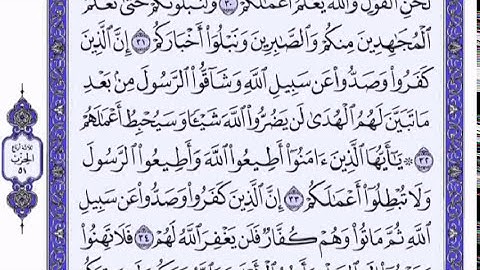 لَحْنِ ٱلْقَوْلِ وَٱللَّهُ يَعْلَمُ أَعْمَٰلَكُمْ ٣٠ وَلَنَبْلُوَنَّكُمْ حَتَّىٰ نَعْلَمَ
ٱلْمُجَٰهِدِينَ مِنكُمْ وَٱلصَّٰبِرِينَ وَنَبْلُوَا۟ أَخْبَارَكُمْ ٣١ إِنَّ ٱلَّذِينَ
كَفَرُوا۟ وَصَدُّوا۟ عَن سَبِيلِ ٱللَّهِ وَشَآقُّوا۟ ٱلرَّسُولَ مِنۢ بَعْدِ
مَا تَبَيَّنَ لَهُمُ ٱلْهُدَىٰ لَن يَضُرُّوا۟ ٱللَّهَ شَيْـًٔا وَسَيُحْبِطُ أَعْمَٰلَهُمْ
٣٢ ۞ يَٰٓأَيُّهَا ٱلَّذِينَ ءَامَنُوٓا۟ أَطِيعُوا۟ ٱللَّهَ وَأَطِيعُوا۟ ٱلرَّسُولَ
وَلَا تُبْطِلُوٓا۟ أَعْمَٰلَكُمْ ٣٣ إِنَّ ٱلَّذِينَ كَفَرُوا۟ وَصَدُّوا۟ عَن سَبِيلِ
ٱللَّهِ ثُمَّ مَاتُوا۟ وَهُمْ كُفَّارٌ فَلَن يَغْفِرَ ٱللَّهُ لَهُمْ ٣٤ فَلَا تَهِنُوا۟
الحزب
٥١